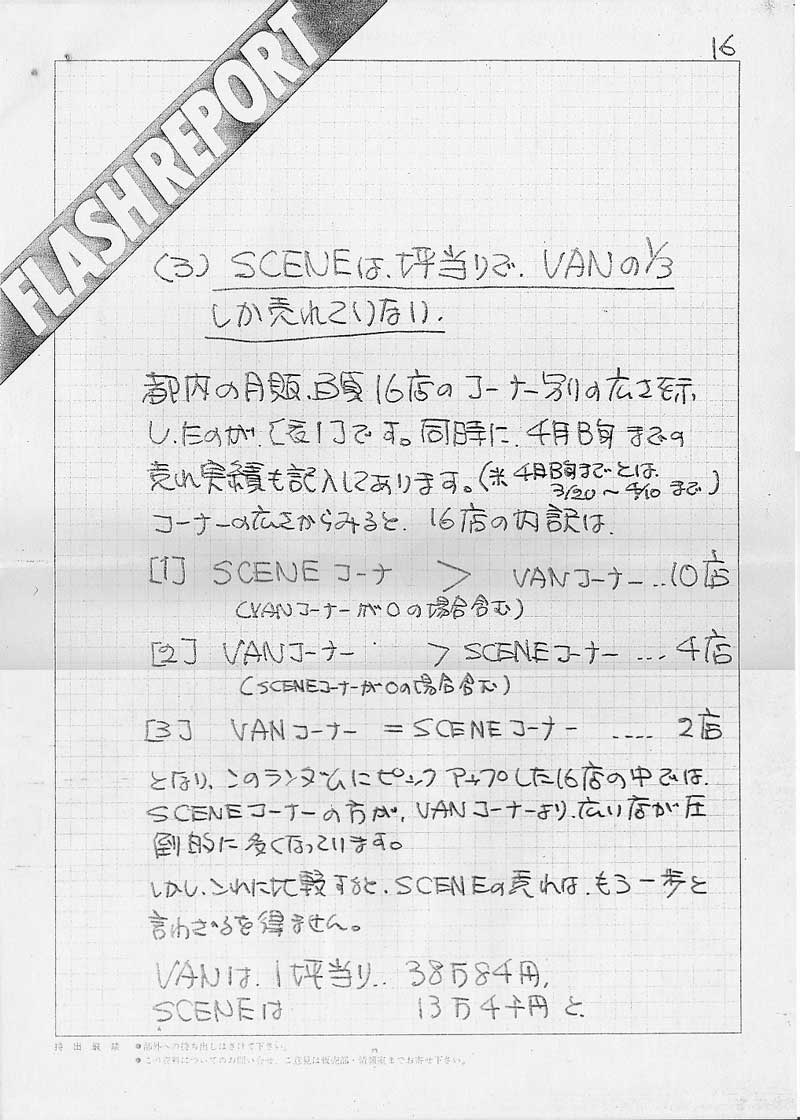 16
FLASH REPORT
(3) SCENEは、坪当りで、VANの1/3
しか売れていない.
都内の月販、B頃16店のコーナー別の広さを示
したのが、〔表1〕です。同時に、4月B旬までの
売れ実績も記入してあります。(※4月B旬までとは、
3/20〜4/10まで)
コーナーの広さからみると、16店の内訳は、
[1] SCENEコーナ > VANコーナー…10店
(VANコーナーが0の場合含む)
[2] VANコーナー > SCENEコーナー … 4店
(SCENEコーナーが0の場合含む)
[3] VANコーナー = SCENEコーナー …. 2店
となり、このランダムにピックアップした16店の中では、
SCENEコーナーの方が、VANコーナーより、広い店が圧
倒的に多くなっています。
しかし、これに比較すると、SCENEの売れは、もう一歩と
言わざるを得ません。
VANは、1坪当り、38万84円,
SCENEは 13万4千円と、
持出厳禁 ●部外への持ち出しはさけて下さい。
●この資料についてのお問い合せ、ご意見は販売部・情報室までお寄せ下さい。